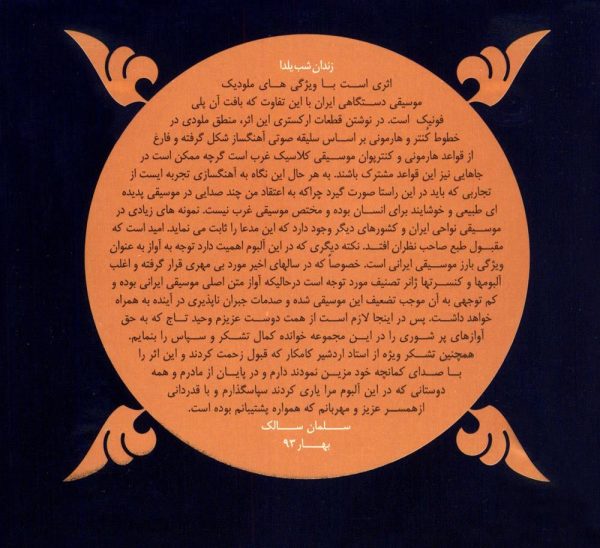 زندان شب یلدا
اثری است با ویژگی های ملودیک
موسیقی دستگاهی ایران با این تفاوت که بافت آن پلی
فونیک است. در نوشتن قطعات ارکستری این اثر، منطق ملودی در
خطوط کُنتر و هارمونی بر اساس سلیقه صوتی آهنگساز شکل گرفته و فارغ
از قواعد هارمونی و کنترپوان موسیقی کلاسیک غرب است گرچه ممکن است در
جاهایی نیز این قواعد مشترک باشند. به هر حال این نگاه به آهنگسازی تجربه ایست از
تجاربی که باید در این راستا صورت گیرد چراکه به اعتقاد من چند صدایی در موسیقی پدیده
ای طبیعی و خوشایند برای انسان بوده و مختص موسیقی غرب نیست. نمونه های زیادی در
موسیقی نواحی ایران و کشورهای دیگر وجود دارد که این مدعا را ثابت می نماید. امید است که
مقبول طبع صاحب نظران افتد. نکته دیگری که در این آلبوم اهمیت دارد توجه به آواز به عنوان
ویژگی بارز موسیقی ایرانی است. خصوصاً که در سالهای اخیر مورد بی مهری قرار گرفته و اغلب
آلبومها و کنسرتها ژانر تصنیف مورد توجه است درحالیکه آواز متن اصلی موسیقی ایرانی بوده و
کم توجهی به آن موجب تضعیف این موسیقی شده و صدمات جبران ناپذیری در آینده به همراه
خواهد داشت. پس در اینجا لازم است از همت دوست عزیزم وحید تاج که به حق
آوازهای پر شوری را در این مجموعه خوانده کمال تشکر و سپاس را بنمایم.
همچنین تشکر ویژه از استاد اردشیر کامکار که قبول زحمت کردند و این اثر را
با صدای کمانچه خود مزین نمودند دارم و در پایان از مادرم و همه
دوستانی که در این آلبوم مرا یاری کردند سپاسگذارم و با قدردانی
ازهمسر عزیز و مهربانم که همواره پشتیبانم بوده است.
سلمان سالک
بهار ۹۳